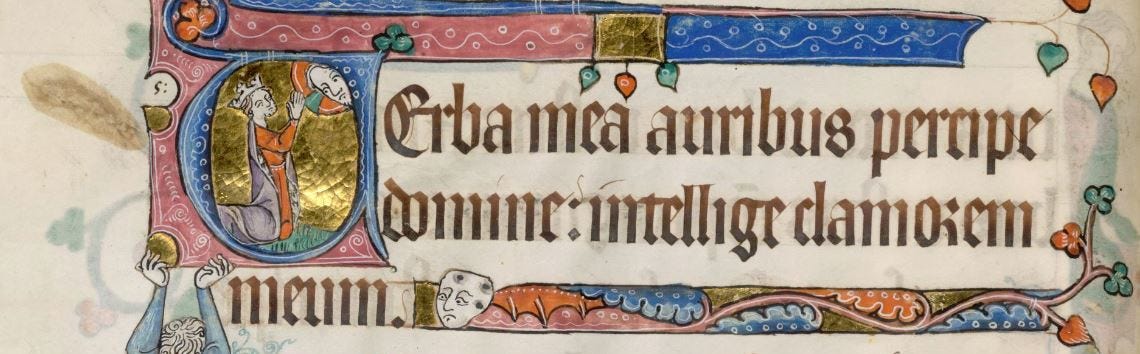 VErba mea auribus percipe
domine: intellige clamorem
meum.